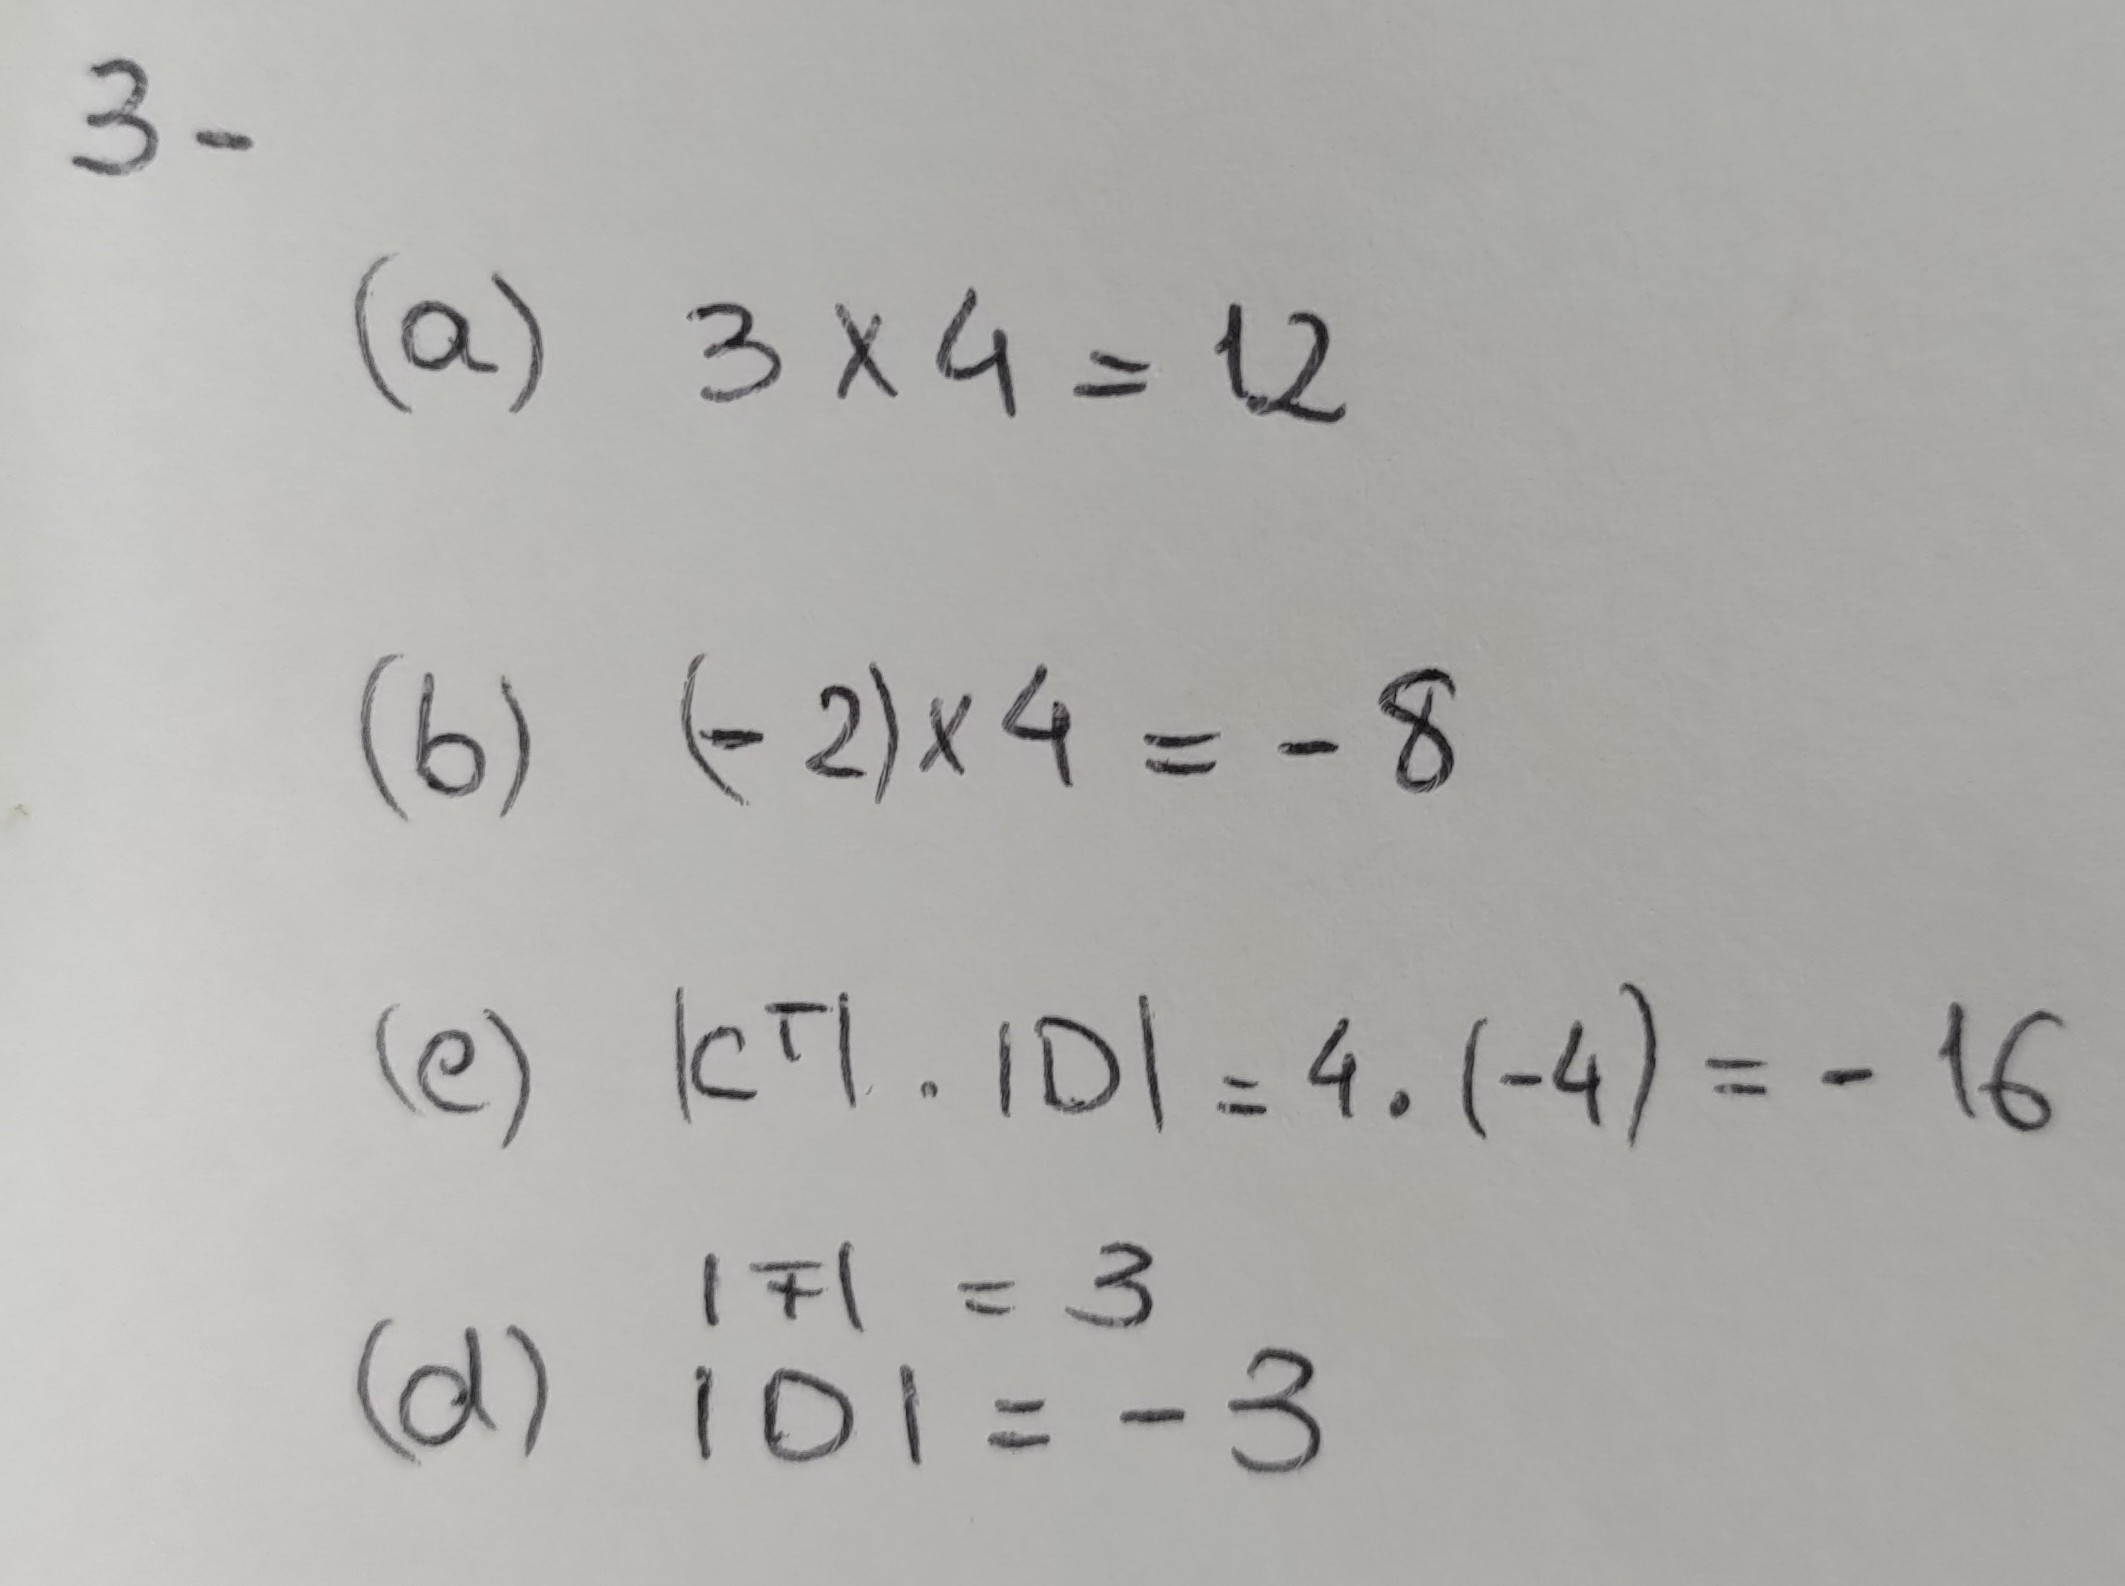 3-
(a) 3 x 4 = 12
(b) (-2) x 4 = - 8
(c) |Cᵀ| . |D| = 4 . (-4) = - 16
|F| = 3
(d) |D| = - 3